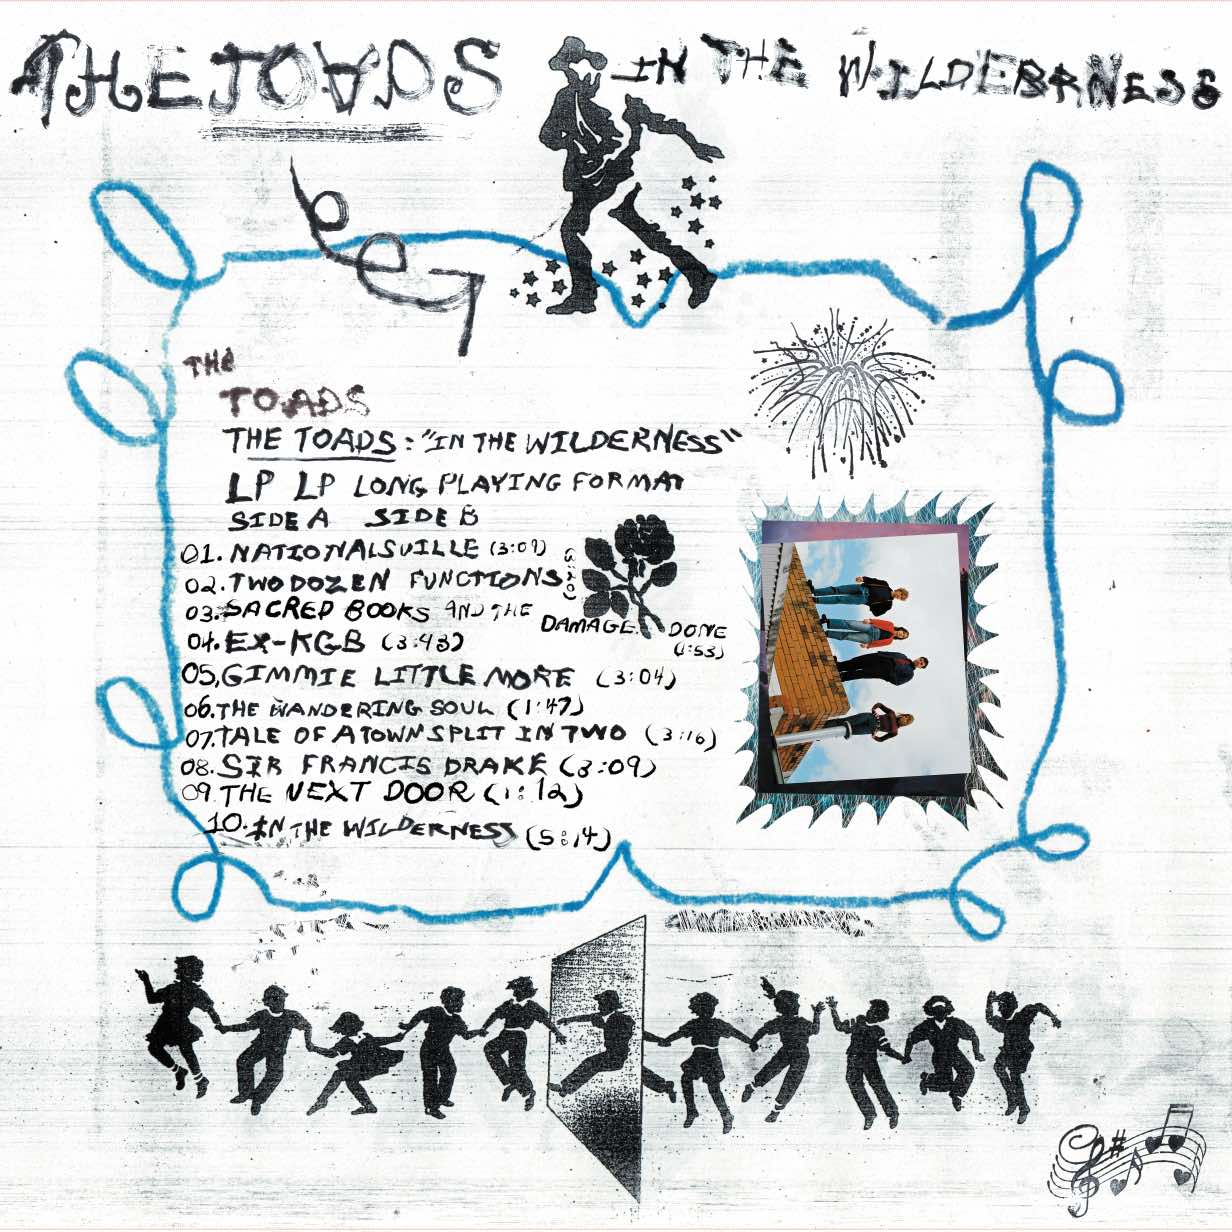 THE TOADS IN THE WILDERNESS
THE
TOADS
THE TOADS: "IN THE WILDERNESS"
LP LP LONG PLAYING FORMAT
SIDE A SIDE B
01. NATIONALSVILLE (3:09)
02. TWO DOZEN FUNCTIONS
03. SACRED BOOKS AND THE DAMAGE DONE (1:53)
04. EX-KGB (3:43)
05, GIMMIE LITTLE MORE (3:04)
06. THE WANDERING SOUL (1:47)
07. TALE OF A TOWN SPLIT IN TWO (3:16)
08. SIR FRANCIS DRAKE (3:09)
09. THE NEXT DOOR (1:12)
10. IN THE WILDERNESS (5:14)